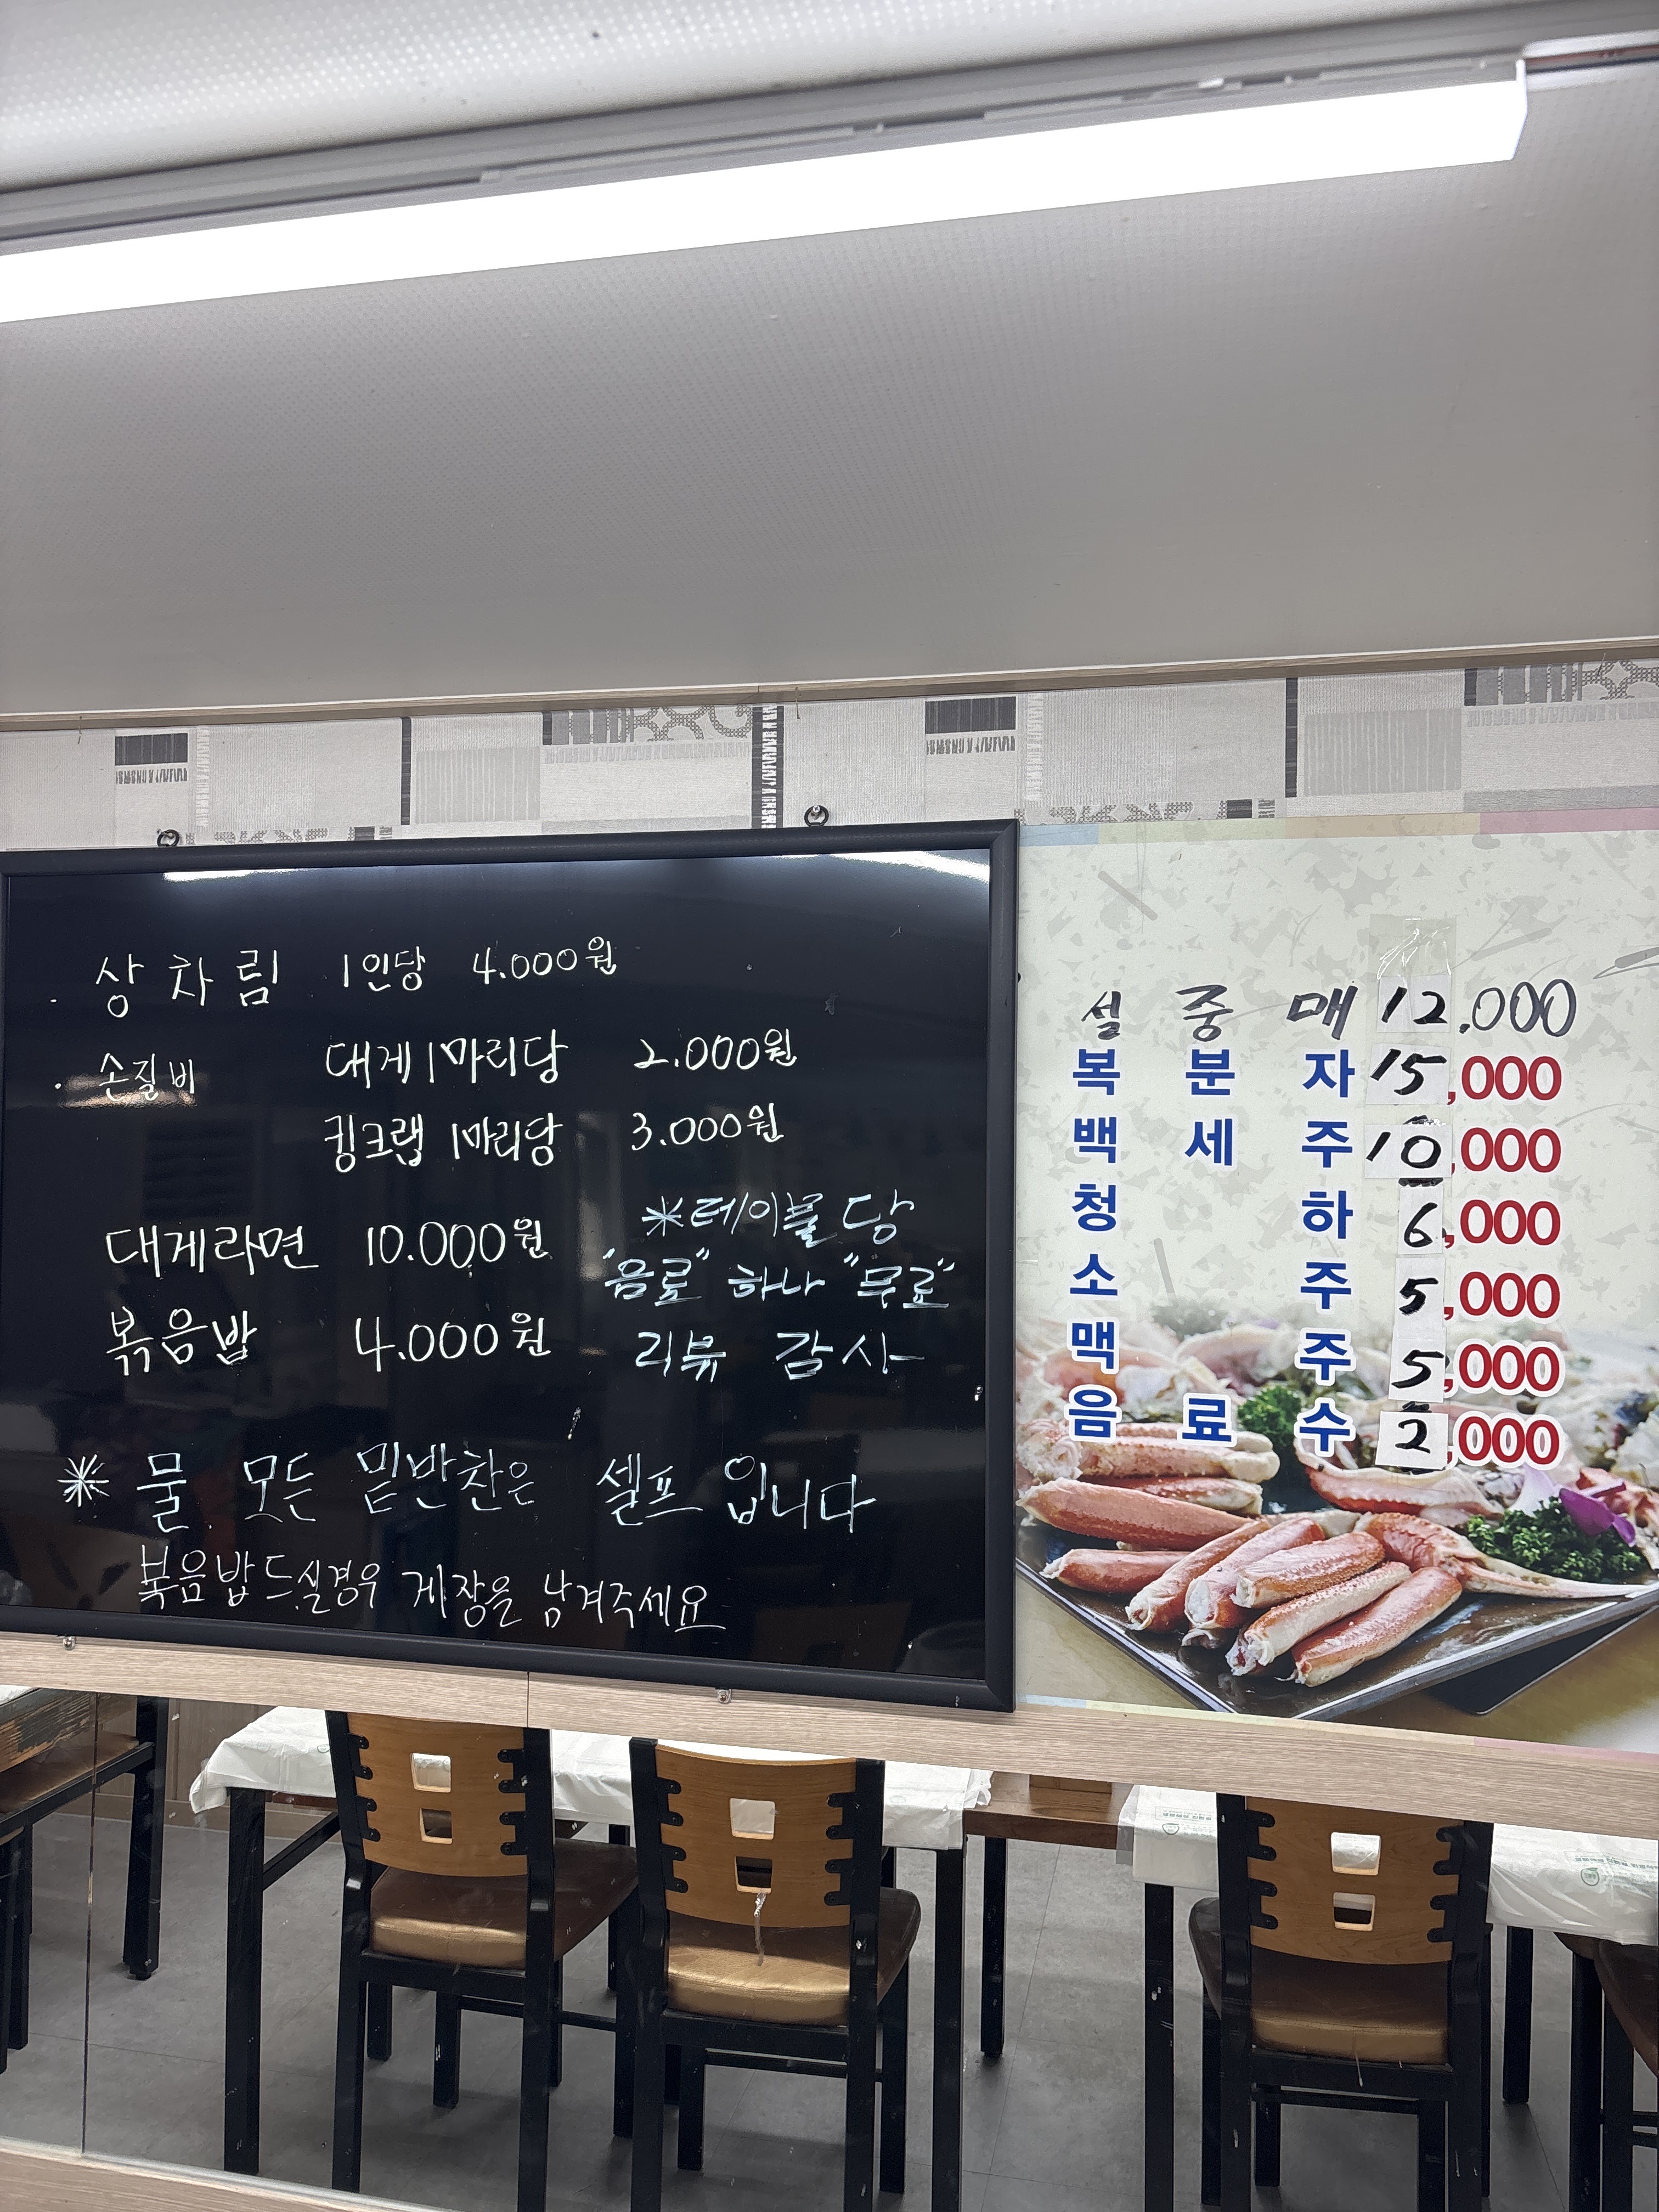 · 상차림 1인당 4.000원
· 손질비 대게 1마리당 2.000원
킹크랩 1마리당 3.000원
대게라면 10.000원
볶음밥 4.000원
※테이블 당
"음료" 하나 "무료"
리뷰 감사
※ 물. 모든 밑반찬은 셀프 입니다
볶음밥 드실경우 게장을 남겨주세요
설중매 12,000
복분자 15,000
백세주 10,000
청하 6,000
소주 5,000
맥주 5,000
음료수 2,000